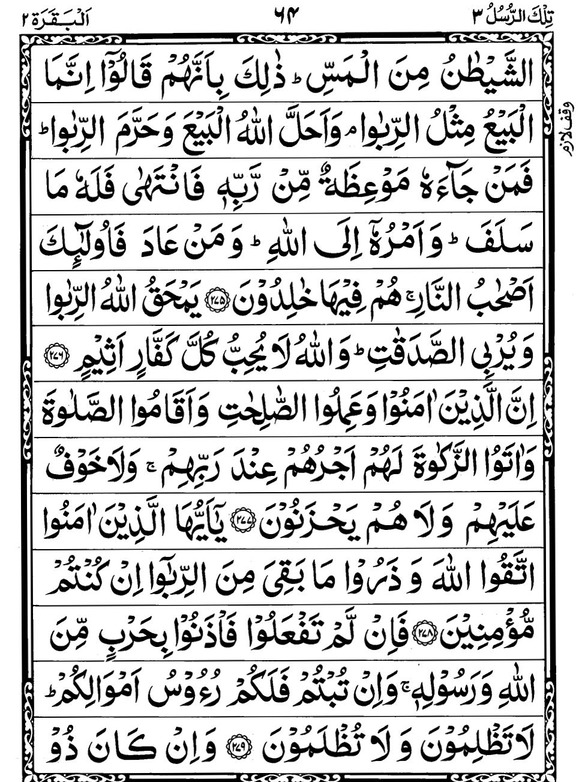 تِلْكَ الرُّسُلُ ٣ ٦٤ اَلْبَقَرَة ٢
الشَّيْطٰنُ مِنَ الْمَسِّ ؕ ذٰلِكَ بِاَنَّهُمْ قَالُوْۤا اِنَّمَا
الْبَيْعُ مِثْلُ الرِّبٰوا ۘ وَاَحَلَّ اللّٰهُ الْبَيْعَ وَحَرَّمَ الرِّبٰوا ؕ
وقف لازم
فَمَنْ جَآءَهٗ مَوْعِظَةٌ مِّنْ رَّبِّهٖ فَانْتَهٰى فَلَهٗ مَا
سَلَفَ ؕ وَاَمْرُهٗۤ اِلَى اللّٰهِ ؕ وَمَنْ عَادَ فَاُولٰٓئِكَ
اَصْحٰبُ النَّارِ ۚ هُمْ فِيْهَا خٰلِدُوْنَ ﴿٢٧٥﴾ يَمْحَقُ اللّٰهُ الرِّبٰوا
وَيُرْبِى الصَّدَقٰتِ ؕ وَاللّٰهُ لَا يُحِبُّ كُلَّ كَفَّارٍ اَثِيْمٍ ﴿٢٧٦﴾
اِنَّ الَّذِيْنَ اٰمَنُوْا وَعَمِلُوا الصّٰلِحٰتِ وَاَقَامُوا الصَّلٰوةَ
وَاٰتَوُا الزَّكٰوةَ لَهُمْ اَجْرُهُمْ عِنْدَ رَبِّهِمْ ۚ وَلَا خَوْفٌ
عَلَيْهِمْ وَلَا هُمْ يَحْزَنُوْنَ ﴿٢٧٧﴾ يٰۤاَيُّهَا الَّذِيْنَ اٰمَنُوا
اتَّقُوا اللّٰهَ وَذَرُوْا مَا بَقِىَ مِنَ الرِّبٰۤوا اِنْ كُنْتُمْ
مُّؤْمِنِيْنَ ﴿٢٧٨﴾ فَاِنْ لَّمْ تَفْعَلُوْا فَاْذَنُوْا بِحَرْبٍ مِّنَ
اللّٰهِ وَرَسُوْلِهٖ ۚ وَاِنْ تُبْتُمْ فَلَكُمْ رُءُوْسُ اَمْوَالِكُمْ ۚ
لَا تَظْلِمُوْنَ وَلَا تُظْلَمُوْنَ ﴿٢٧٩﴾ وَاِنْ كَانَ ذُوْ